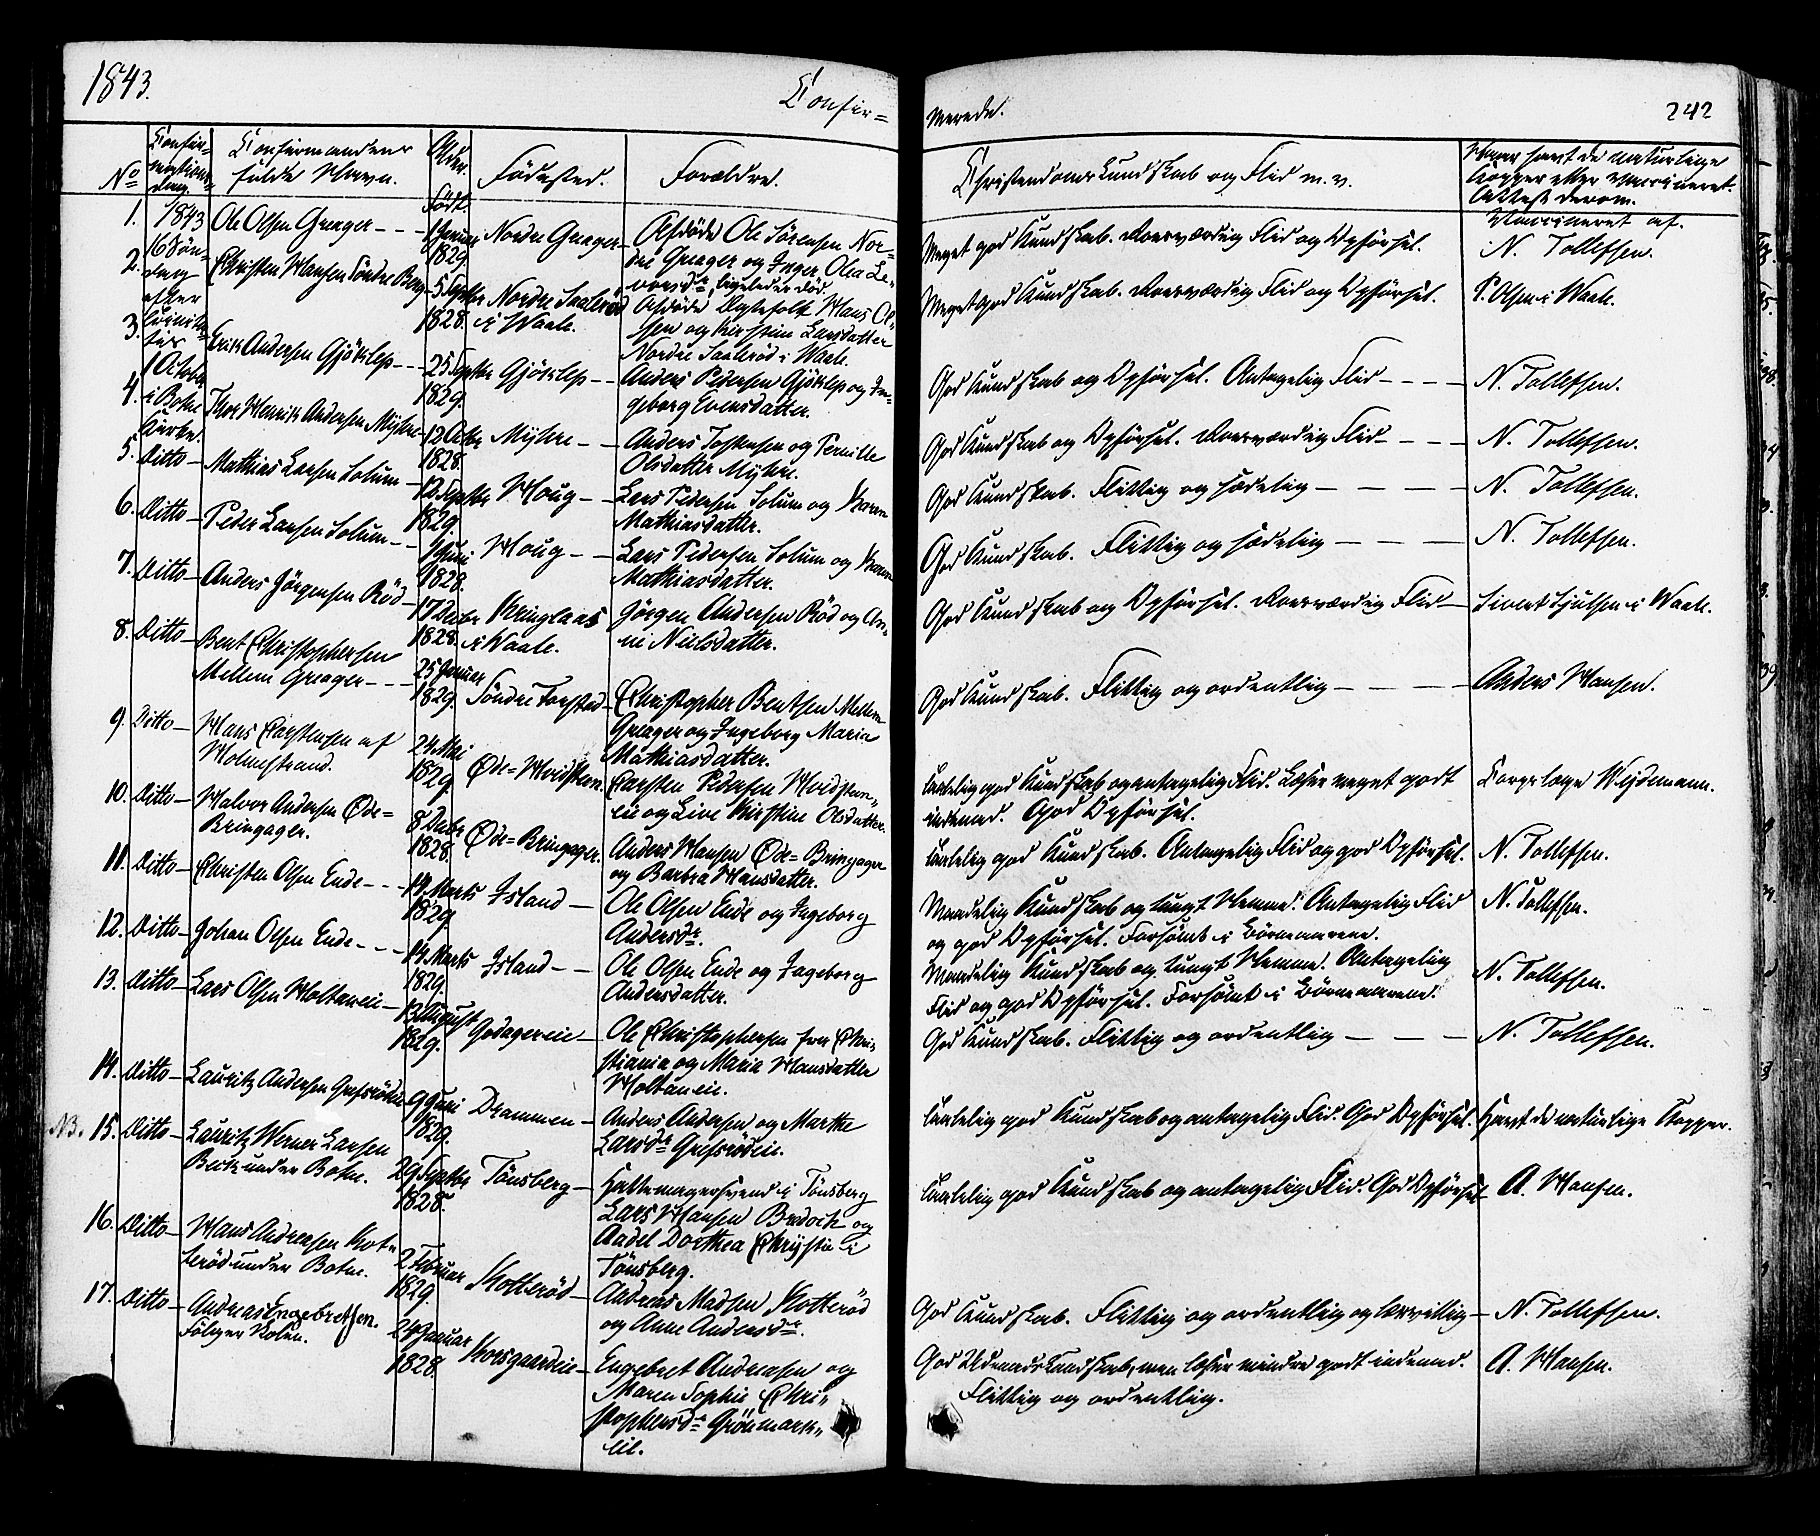 1843.
Confir=
merede.
242
No
Confir-
mations-
dag.
Confirmandens
fulde Navn.
Alder.
Født.
Fødested.
Forældre.
Christendoms Kundskab og Flid m. v.
Hvem havt de naturlige
Kopper eller vaccineret.
Attest derom.
Vaccineret af.
1. 1843 Ole Olsen Greager - - - 1 Januar 1829. Nordre Greager - Afdøde Ole Sørensen Nor-
dre Greager og Inger Olea
ligeledes død.
Meget god Kundskab. Roesværdig Flid og Opførsel. N. Tollefsen.
2. 16 Søn-
dag
efter
Trinita-
tis
Christen Hansen Søndre Berg 5 Septbr 1828. Nordre Saalerød
i Waale.
Afdøde Ægtefolk Hans Ol-
sen og Kirstine Larsdatter
Nordre Saalerød i Waale.
Meget god Kundskab. Roesværdig Flid og Opførsel. P. Olsen i Waale.
3. 1 Octobr Erik Andersen Gjøklep - - - 25 Septbr 1829. Gjøklep - - Anders Pedersen Gjøklep og In-
geborg Evensdatter.
God Kundskab og Opførsel. Antagelig Flid - - - - N. Tollefsen.
4. i Botne
Kirke.
Thor Henrik Andersen Myhre - 12 Octbr 1828. Myhre - - Anders Torstensen og Pernille
Olsdatter Myhre.
God Kundskab og Opførsel. Roesværdig Flid - - - - N. Tollefsen.
5. Ditto - Mathias Larsen Solum - 12 Septbr 1829. Houg - - Lars Pedersen Solum og Karen
Mathiasdatter.
God Kundskab. Flittig og sædelig - - - - N. Tollefsen.
6. Ditto - Peder Larsen Solum - - Juni 1828. Houg - - Lars Pedersen Solum og Karen
Mathiasdatter.
God Kundskab. Flittig og sædelig - - - - N. Tollefsen.
7. Ditto - Anders Jørgensen Rød - 17 Decbr 1828. Kringlaas
i Waale.
Jørgen Andersen Rød og An-
ne Nielsdatter.
God Kundskab og Opførsel. Roesværdig Flid - Sivert Sjulsen i Waale.
8. Ditto - Bent Christophersen
Mellem Greager - - - 25 Januar 1829. Søndre Forsted - Christopher Bentsen Mellem
Greager og Ingeborg Maria
Mathiasdatter.
God Kundskab. Flittig og ordentlig - - - - Anders Hansen.
9. Ditto - Hans Carstensen af
Holmestrand. 24 Mai 1829. Øde=Hvidsteen. Carsten Pedersen Hvidsteen-
eie og Live Kirstine Olsdatter.
Taalelig god Kundskab og antagelig Flid. Læser meget godt
indenad. God Opførsel.
Corpslæge Weidemann.
10. Ditto - Halvor Andersen Øde=
Bringager. 8 Decbr 1828. Øde=Bringager. Anders Hansen Øde=Bringager
og Barbra Hansdatter.
Taalelig god Kundskab. Antagelig Flid og god Opførsel. N. Tollefsen.
11. Ditto - Christen Olsen Ende - - - 14 Marts 1829. Island - Ole Olsen Ende og Ingeborg
Andersdr.
Maadelig Kundskab og tungt Nemme. Antagelig Flid
og god Opførsel. Forsømt i Børneaarene.
N. Tollefsen.
12. Ditto - Johan Olsen Ende - - - 14 Marts 1829. Island - - Ole Olsen Ende og Ingeborg
Andersdatter.
Maadelig Kundskab og tungt Nemme. Antagelig
Flid og god Opførsel. Forsømt i Børneaarene.
N. Tollefsen.
13. Ditto - Lars Olsen Holtaneie - 13 August 1829. Godagereie - Ole Christophersen fra Chri-
stiania og Maria Hansdatter
Holtaneie.
God Kundskab. Flittig og ordentlig - - - - N. Tollefsen.
14. Ditto - Lauritz Andersen Grefsrødeie 9 Juni 1829. Drammen - Anders Andersen og Marthe
Larsdr Grefsrødeie.
Taalelig god Kundskab og antagelig Flid. God Opførsel. Havt de naturlige Kopper.
NB. 15. Ditto - Lauritz Werner Larsen
Bek under Botne. 29 Septbr 1828. Tønsberg - Hattemagersvend i Tønsberg
Lars Hansen Bradock og
Andel Dorthea Christie i
Tønsberg.
Taalelig god Kundskab og antagelig Flid. God Opførsel - A. Hansen.
16. Ditto - Hans Andreasen Kot-
terød under Botne. 2 Februar 1829. Kotterød - Andreas Madsen Kotterød
og Anne Andersdr.
God Kundskab. Flittig og ordentlig og - N. Tollefsen.
17. Ditto - Andreas Engebretsen.
Følger Skolen. 24 Januar 1828. Korsgaardeie - Engebret Andreasen og
Maren Sophie Chri-
stophersdr Grønmark-
eie.
God Udenads Kundskab, men læser mindre godt indenad.
Flittig og ordentlig.
A. Hansen.